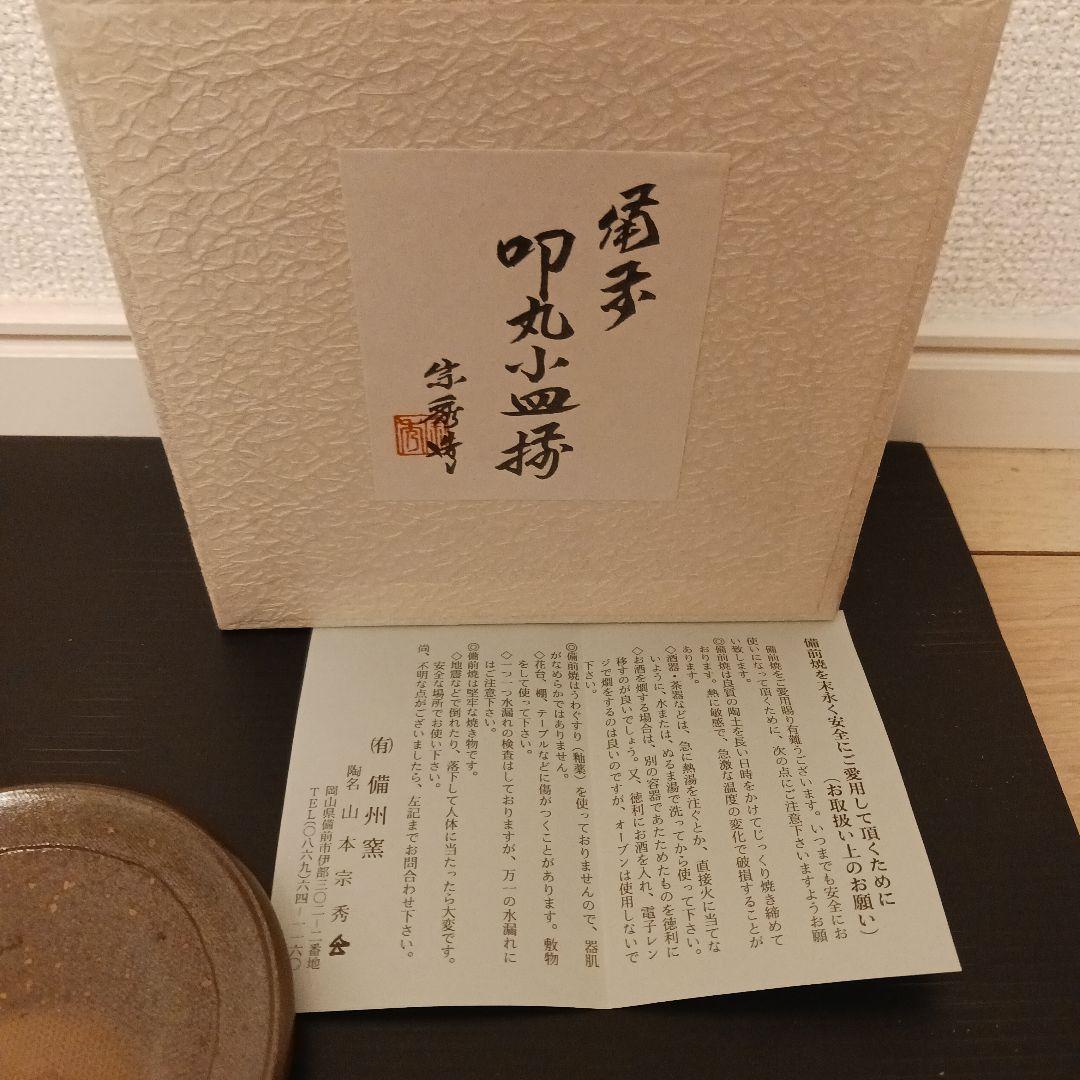 備前
叩丸小皿揃
宗秀
備前焼を末永く安全にご愛用して頂くために
(お取扱い上のお願い)
備前焼をご愛用賜り有難うございます。いつまでも安全にお
使いになって頂くために、次の点にご注意下さいますようお願
い致します。
◎備前焼は良質の陶土を長い日時をかけてじっくり焼き締めて
おります。熱に敏感で、急激な温度の変化で破損することが
あります。
◇酒器・茶器などは、急に熱湯を注ぐとか、直接火に当てな
いように、水または、ぬるま湯で洗ってから使って下さい。
◇お酒を燗する場合は、別の容器であたためたものを徳利に
移すのが良いでしょう。又、徳利にお酒を入れ、電子レン
ジで燗をするのは良いのですが、オーブンは使用しないで
下さい。
◎備前焼はうわぐすり(釉薬)を使っておりませんので、器肌
がなめらかではありません。
◇花台、棚、テーブルなどに傷がつくことがあります。敷物
をして使って下さい。
◇一つ一つ水漏れの検査はしておりますが、万一の水漏れに
はご注意下さい。
◎備前焼は堅牢な焼き物です。
◇地震などで倒れたり、落下して人体に当たったら大変です。
安全な場所でお使い下さい。
尚、不明な点がございましたら、左記までお問合わせ下さい。
㈲備州窯
陶名 山本宗秀
岡山県備前市伊部三〇二ー二番地
TEL(〇八六九)六四ー一一六〇